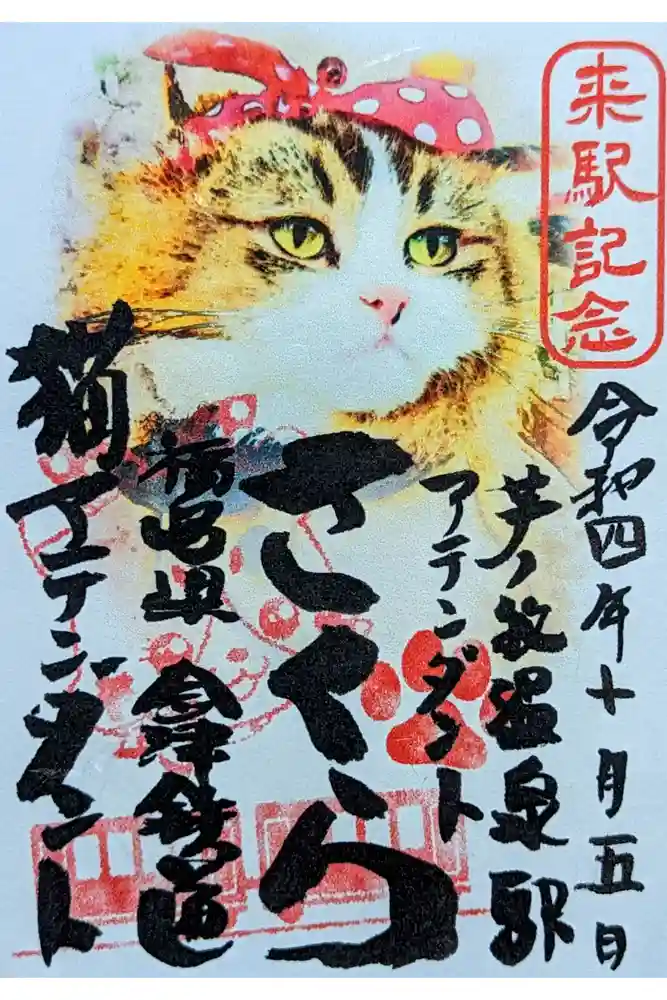 来駅記念
令和四年十月五日
芦ノ牧温泉駅
アテンダント
さくら
福島県 会津鉄道
猫アテンダント